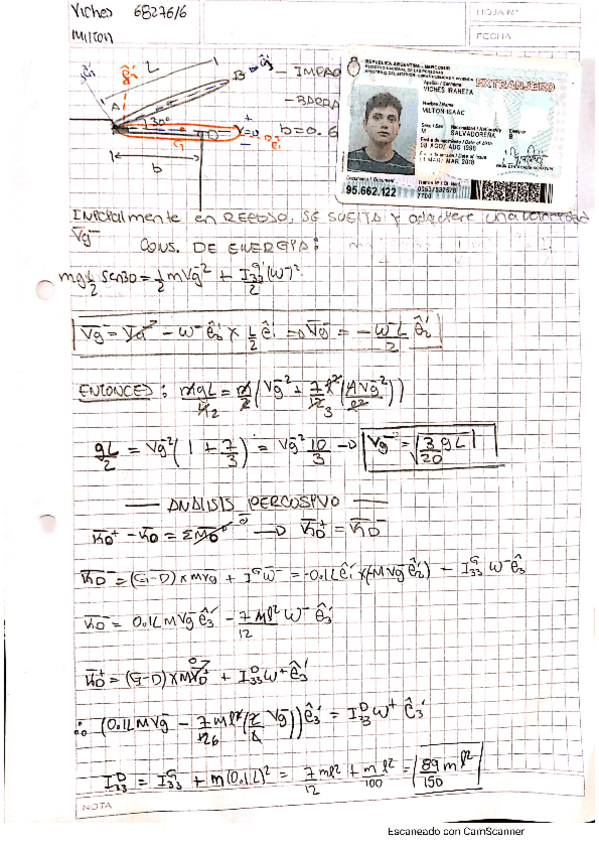 Viches 68276/6
HOJA Nº
Milton
FECHA
L
B
A
30°
G
D
b
- IMPAC
- BARRA
b=0.6
REPUBLICA ARGENTINA - MERCOSUR
EXTRANJERO
VICHES IRAHETA
MILTON ISAAC
M SALVADOREÑA B
95.662.122
INICIALMENTE EN REPOSO, SE SUELTA Y adquiere una velocidad
Vg⁻
CONS. DE ENERGIA:
mg L/2 sen30 = 1/2 m Vg² + I₃₃ᴳ/2 (ω⁻)²
Vg⁻ = Va⁻ - ω⁻ ê₃' × L/2 ê₁' => Vg⁻ = -ω⁻L/2 ê₂'
ENTONCES: mgL/4 = m/2 (Vg² + 7/12 l² (4Vg²/l²))
gL/2 = Vg² (1 + 7/3) = Vg² 10/3 -> Vg⁻ = √(3/20 gL)
ANÁLISIS PERCUSIVO
K̄D⁺ - K̄D⁻ = ΣMD -> K̄D⁺ = K̄D⁻
K̄D⁻ = (G-D) × mVg + Iᴳω⁻ = -0.1L ê₁' × (-MVg ê₂') - I₃₃ᴳ ω⁻ ê₃
K̄D⁻ = 0.1L M Vg ê₃' - 7Ml²/12 ω⁻ ê₃'
K̄D⁺ = (G-D) × MVD⁺ + I₃₃ᴰ ω⁺ ê₃'
∴ (0.1L M Vg - 7ml²/12 (2/l Vg)) ê₃' = I₃₃ᴰ ω⁺ ê₃'
I₃₃ᴰ = I₃₃ᴳ + m(0.1L)² = 7ml²/12 + ml²/100 = 89/150 ml²
NOTA
Escaneado con CamScanner